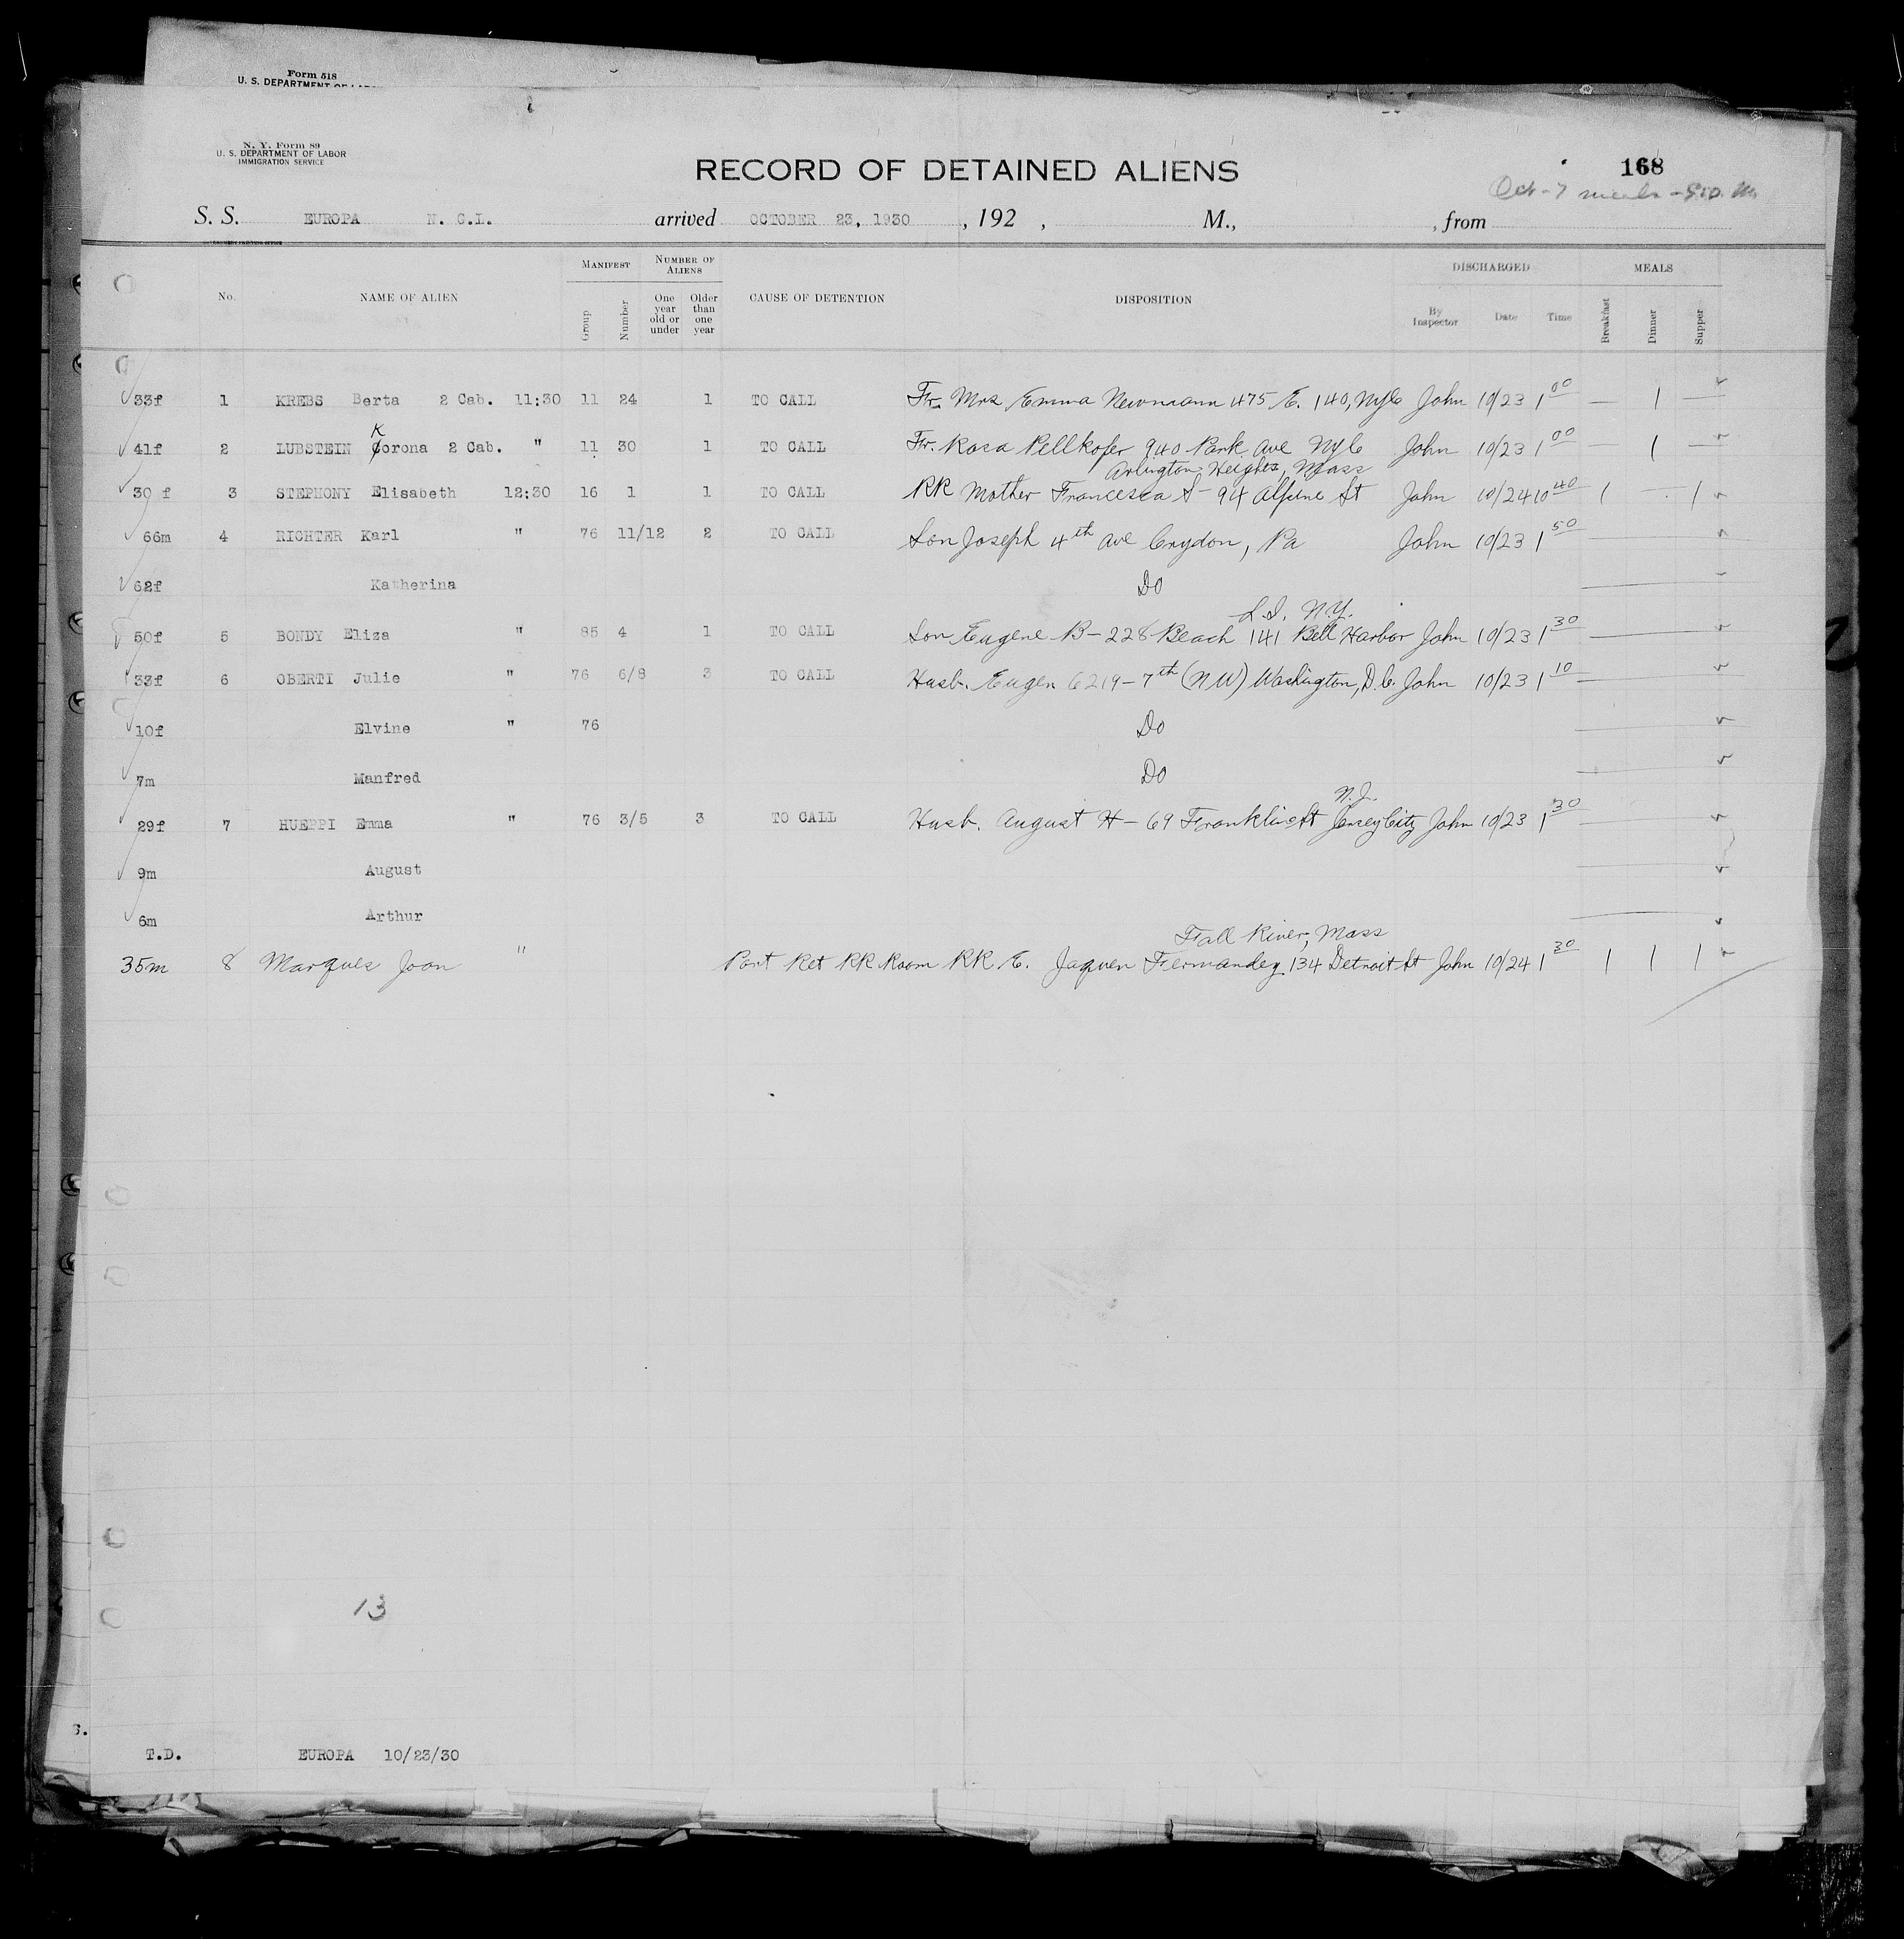 Form 518
U. S. DEPARTMENT OF LABOR
N. Y. Form 89
U. S. DEPARTMENT OF LABOR
IMMIGRATION SERVICE
RECORD OF DETAINED ALIENS
168
Oct - 7 meals -
S. S. EUROPA N. G. L. arrived OCTOBER 23, 1930 , 192 , M., , from
GOVERNMENT PRINTING OFFICE
No. NAME OF ALIEN MANIFEST Group Number NUMBER OF ALIENS One year old or under Older than one year CAUSE OF DETENTION DISPOSITION DISCHARGED By Inspector Date Time MEALS Breakfast Dinner Supper
33f 1 KREBS Berta 2 Cab. 11:30 11 24 1 TO CALL Fr. Mrs Emma Newmann 475 E. 140, NYC John 10/23 1 00 — 1 —
K
41f 2 LUBSTEIN Corona 2 Cab. " 11 30 1 TO CALL Fr. Rosa Pellkofer 940 Park Ave NYC John 10/23 1 00 — 1 —
Arlington Heights, Mass
30 f 3 STEPHONY Elisabeth 12:30 16 1 1 TO CALL RR Mother Francesca S - 94 Alpine St John 10/24 10 40 1 — 1
66m 4 RICHTER Karl " 76 11/12 2 TO CALL Son Joseph 4th Ave Croydon, Pa John 10/23 1 50
62f Katherina Do
L. I. N.Y.
50f 5 BONDY Eliza " 85 4 1 TO CALL Son Eugene B - 228 Beach 141 Bell Harbor John 10/23 1 30
33f 6 OBERTI Julie " 76 6/8 3 TO CALL Husb. Eugen 6219 - 7th (NW) Washington, D.C. John 10/23 1 10
10f Elvine " 76 Do
7m Manfred Do
N.J.
29f 7 HUEPPI Emma " 76 3/5 3 TO CALL Husb. August H - 69 Franklin St Jersey City John 10/23 1 30
9m August
6m Arthur
Fall River, Mass
35m 8 Marques Joan " Port Ret RR Room RR E. Jaquen Fernandez 134 Detroit St John 10/24 1 30 1 1 1
13
T.D. EUROPA 10/23/30